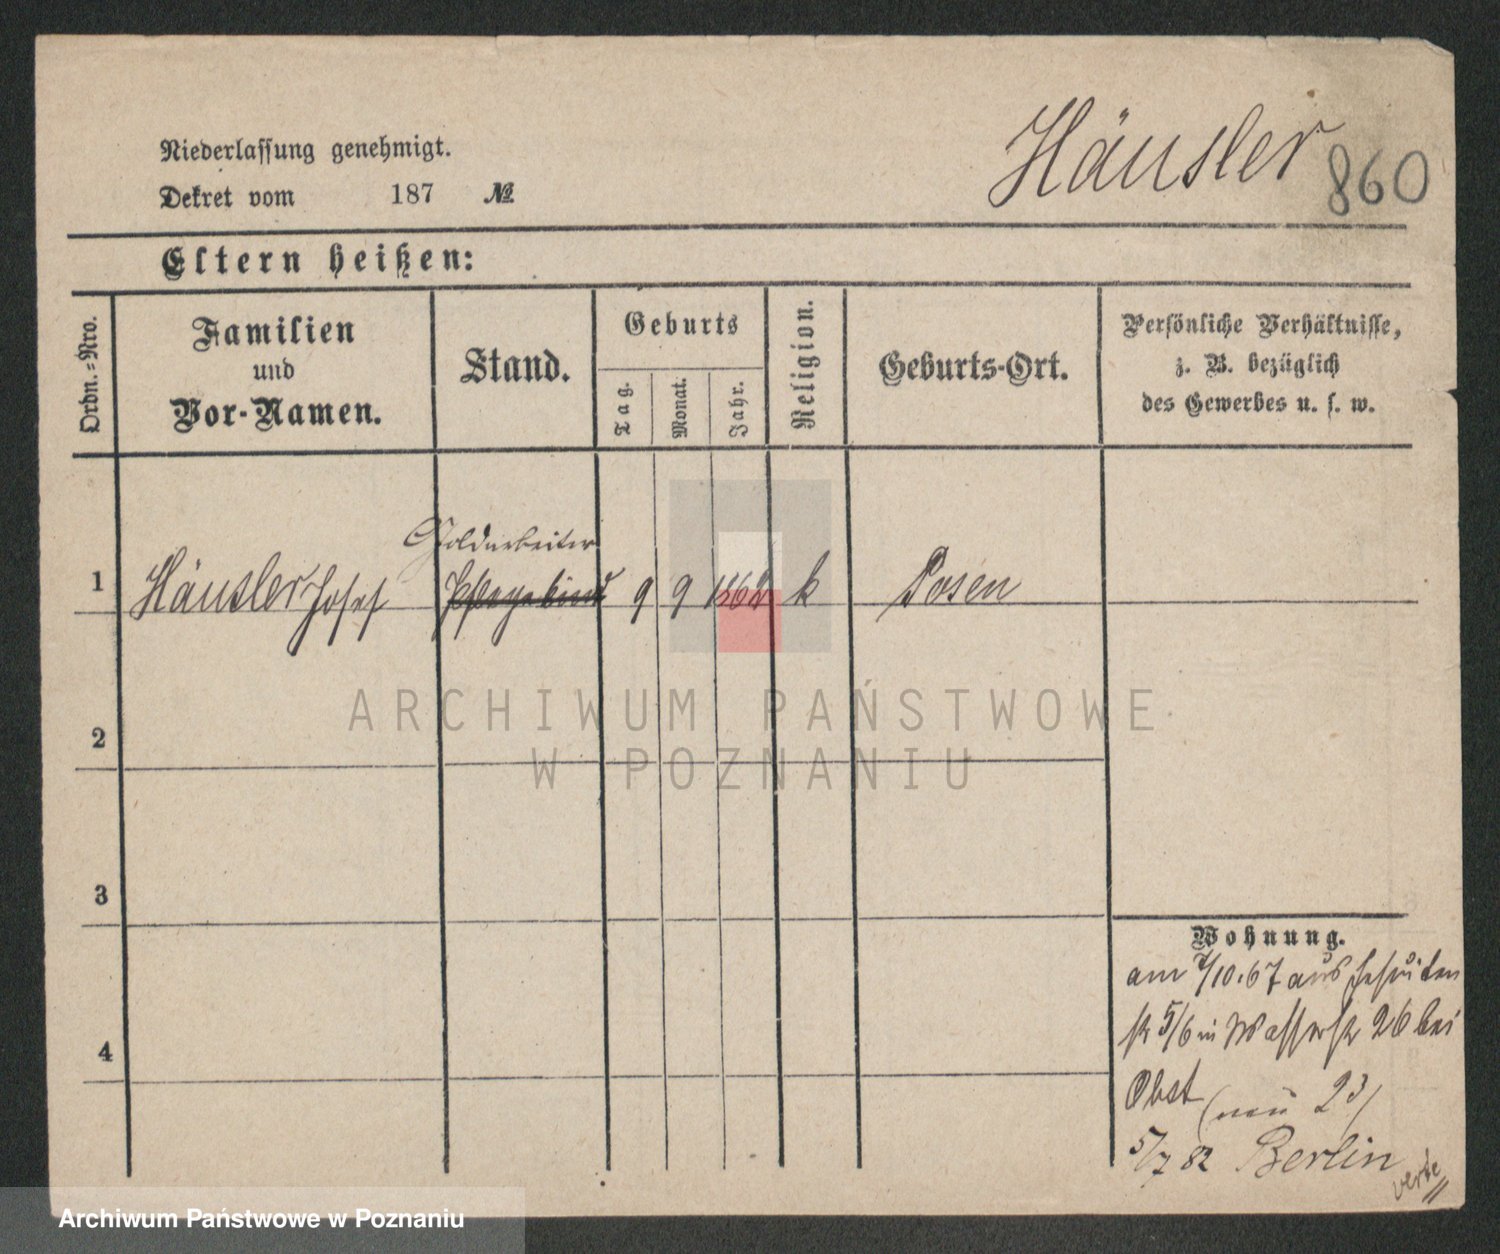 Häusler 860
Niederlassung genehmigt.
Dekret vom 187 №
Eltern heißen:
Ordn.-Nro.
Familien
und
Vor-Namen.
Stand.
Geburts
Tag.
Monat.
Jahr.
Religion.
Geburts-Ort.
Persönliche Verhältnisse,
z. B. bezüglich
des Gewerbes u. s. w.
Goldarbeiter
1 Häusler Josef Pflegekind 9 9 1862 k Posen
2
3
4
Wohnung.
am 7/10.67 aus Jesuiten
str 5/6 in Wasserstr 26 bei
Obst (neu 23)
5/7 82 Berlin
verte
ARCHIWUM PAŃSTWOWE
W POZNANIU
Archiwum Państwowe w Poznaniu